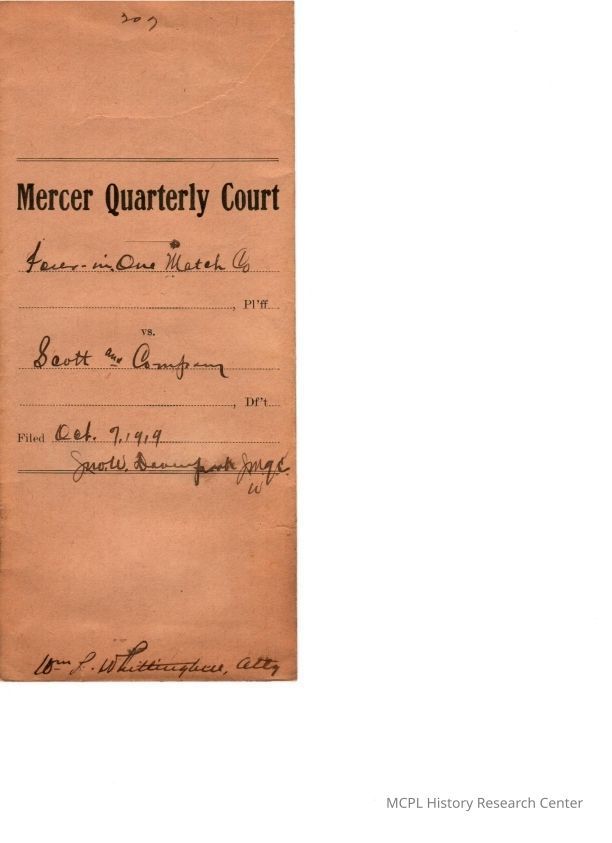 207
Mercer Quarterly Court
Four-in-One Match Co
, Pl'ff
vs.
Scott and Company
, Df't
Filed Oct. 7, 1919
Jno. W. Davenport J.M.Q.C.
Wm L. Whittinghill, Atty
MCPL History Research Center